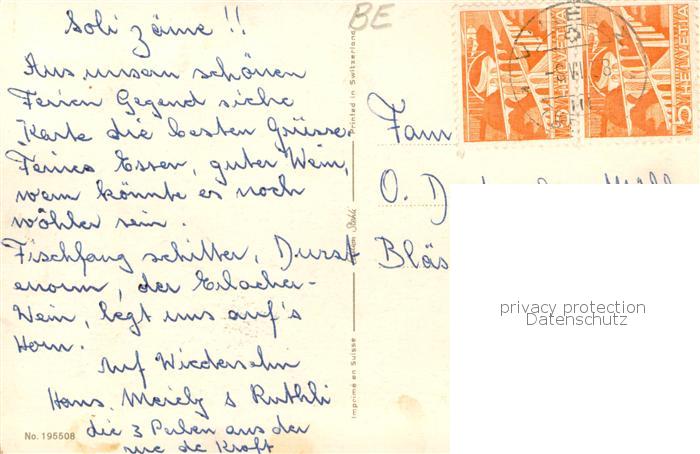 Soli zäme !!
Aus unsern schönen
Ferien Gegend siehe
Karte die besten Grüsse.
Feines Essen, guter Wein,
wem könnte es noch
wöhler sein.
Fischfang schitter, Durst
enorm, der Erlacher-
Wein, legt uns auf's
Horn.
Auf Wiedersehn
Hans, & Ruthli
die 3 Perlen aus der
rue de Kraft
No. 195508
BE
Printed in Switzerland
Imprimé en Suisse
HELVETIA
5
HELVETIA
5
Fam
O. D
Bläs
privacy protection
Datenschutz